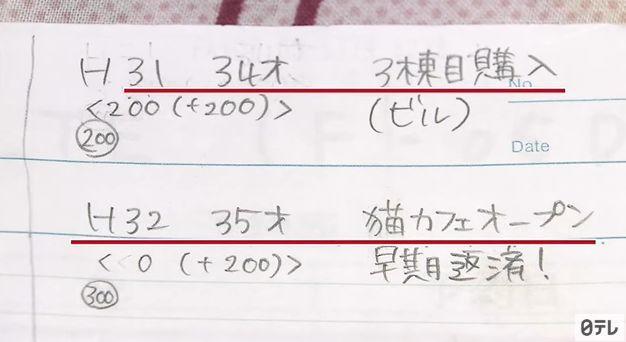 H31 34才 3棟目購入
No.
<200(+200)> (ビル)
200
Date
H32 35才 猫カフェオープン
<0 (+200)> 早期返済!
300
日テレ